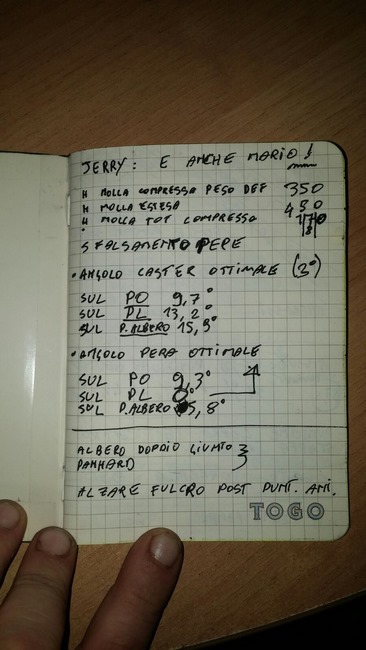 JERRY: E ANCHE MARIO!
mm
H MOLLA COMPRESSA PESO DEF 350
H MOLLA ESTESA 450
H MOLLA TOT COMPRESSO
SFALSAMENTO PERE
• ANGOLO CASTER OTTIMALE (3°)
SUL PO 9,7°
SUL PL 13,2°
SUL P.ALBERO 15,9°
• ANGOLO PERA OTTIMALE
SUL PO 9,3°
SUL PL 0°
SUL P.ALBERO 5,8°
ALBERO DOPPIO GIUNTO
PANHARD
ALZARE FULCRO POST PUNT. ANT.
TOGO